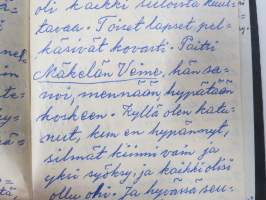 oli kaikki silloin kuul-
tavaa. Toiset lapset pel-
käsivät kovasti. Paitsi
Mäkelän Veme, hän sa-
noi, mennään, hypätään
koskeen. Kyllä olen katu-
nut, kun en hypännyt,
silmät kiinni vain ja
yksi syöksy, ja kaikki olisi
ollu ohi. Ja hyvässä seu-